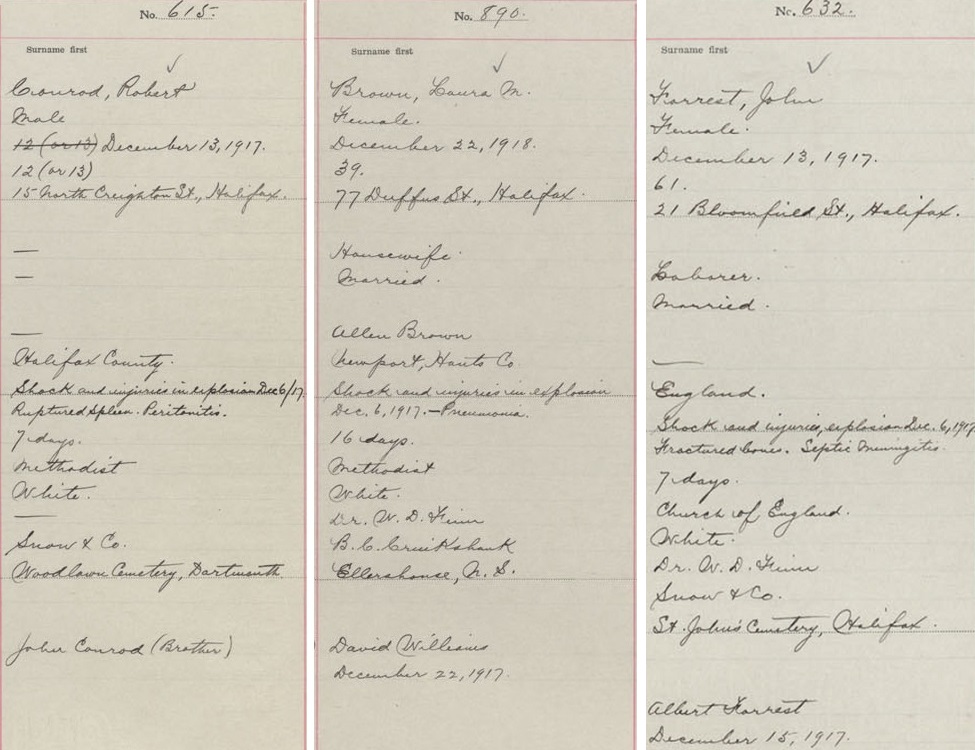 No. 615.
Surname first
✓
Conrod, Robert
Male
12 (or 13) December 13, 1917.
12 (or 13)
15 North Creighton St., Halifax.
—
—
—
Halifax County.
Shock and injuries in explosion Dec 6/17
Ruptured Spleen. Peritonitis.
7 days.
Methodist
White.
—
Snow & Co.
Woodlawn Cemetery, Dartmouth.
John Conrod (Brother)
No. 890.
Surname first
✓
Brown, Laura M.
Female.
December 22, 1918.
39.
77 Duffus St., Halifax.
Housewife.
Married.
Allen Brown
Newport, Hants Co.
Shock and injuries in explosion
Dec. 6, 1917. – Pneumonia.
16 days.
Methodist
White.
Dr. W. D. Finn
B. C. Cruikshank
Ellershouse, N. S.
David Williams
December 22, 1917.
No. 632.
Surname first
✓
Forrest, John
Female.
December 13, 1917.
61.
21 Bloomfield St., Halifax.
Laborer.
Married.
—
England.
Shock and injuries, explosion Dec. 6, 1917
Fractured bones. Septic Meningitis.
7 days.
Church of England.
White.
Dr. W. D. Finn
Snow & Co.
St. John's Cemetery, Halifax.
Albert Forrest
December 15, 1917.